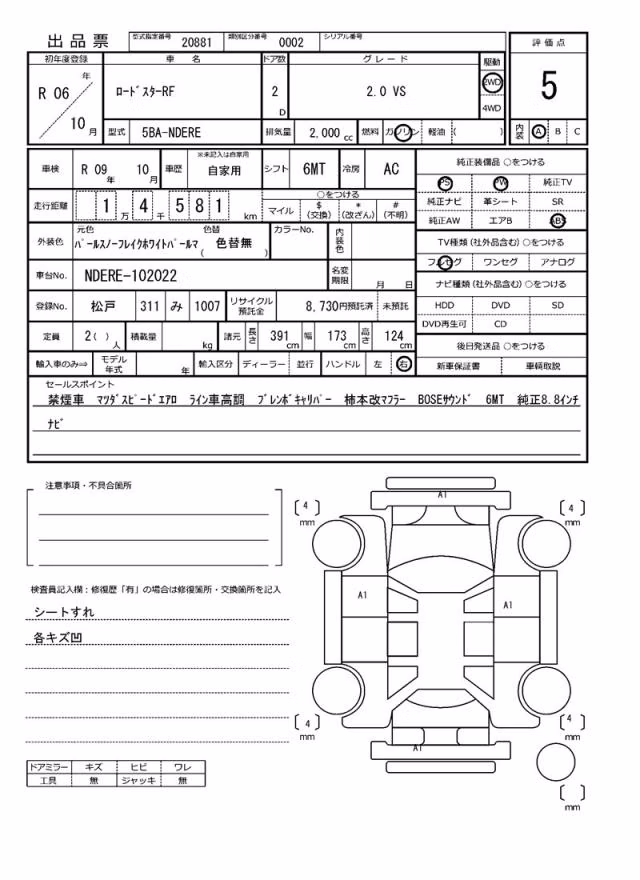 出品票 型式指定番号 20881 類別区分番号 0002 シリアル番号
評価点
5
内装 A B C
初年度登録 車名 ドア数 グレード 駆動
R 06 年 10 月 ﾛｰﾄﾞｽﾀｰRF 2 D 2.0 VS 2WD 4WD
型式 5BA-NDERE 排気量 2,000 cc 燃料 ガソリン 軽油 ( )
車検 R 09 年 10 月 車歴 ※未記入は自家用 自家用 シフト 6MT 冷房 AC
走行距離 1 万 4 千 5 8 1 km ○をつける マイル $ (交換) * (改ざん) # (不明)
外装色 元色 ﾊﾟｰﾙｽﾉｰﾌﾚｲｸﾎﾜｲﾄﾊﾟｰﾙﾏ 色替 ( 色替無 ) カラーNo. 内装色
車台No. NDERE-102022 名変期限 月 日
登録No. 松戸 311 み 1007 リサイクル預託金 8,730円預託済 未預託
定員 2( ) 人 積載量 kg 諸元 長さ 391 cm 幅 173 cm 高さ 124 cm
輸入車のみ⇒ モデル年式 年 輸入区分 ディーラー 並行 ハンドル 左 右
純正装備品 ○をつける
PS PW 純正TV
純正ナビ 革シート SR
純正AW エアB ABS
TV種類 (社外品含む) ○をつける
フルセグ ワンセグ アナログ
ナビ種類 (社外品含む) ○をつける
HDD DVD SD
DVD再生可 CD
後日発送品 ○をつける
新車保証書 車輌取説
セールスポイント
禁煙車 ﾏﾂﾀﾞｽﾋﾟｰﾄﾞｴｱﾛ ﾗｲﾝ車高調 ﾌﾞﾚﾝﾎﾞｷｬﾘﾊﾟｰ 柿本改ﾏﾌﾗｰ BOSEｻｳﾝﾄﾞ 6MT 純正8.8ｲﾝﾁ
ﾅﾋﾞ
注意事項・不具合箇所
検査員記入欄：修復歴「有」の場合は修復箇所・交換箇所を記入
シートすれ
各キズ凹
ドアミラー キズ ヒビ ワレ
工具 無 ジャッキ 無
A1
[ 4 ] mm
[ 4 ] mm
A1
A1
[ 4 ] mm
[ 4 ] mm
A1
[ ] mm